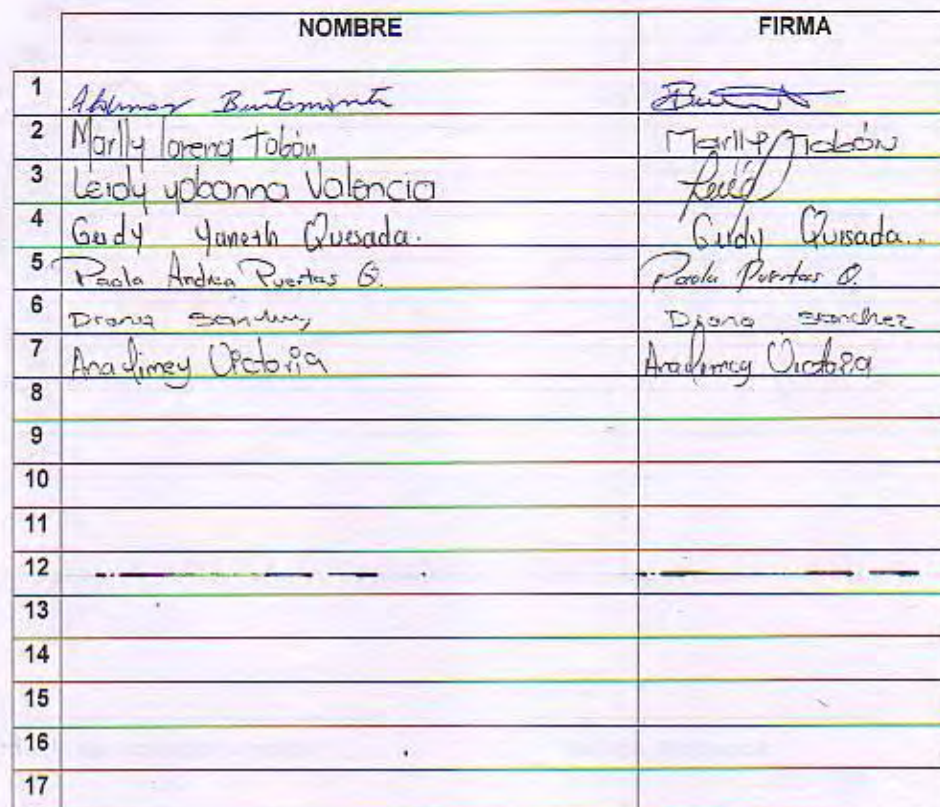 NOMBRE FIRMA
1
2 Marlly lorena Tobón Marlly Tobón
3 Leidy yohanna Valencia
4 Geidy Yaneth Quesada. Geidy Quesada..
5 Paola Andrea Puertas O. Paola Puertas O.
6 Diana Diana sanchez
7 Anadimey Victoria Anadimey Victoria
8
9
10
11
12
13
14
15
16
17